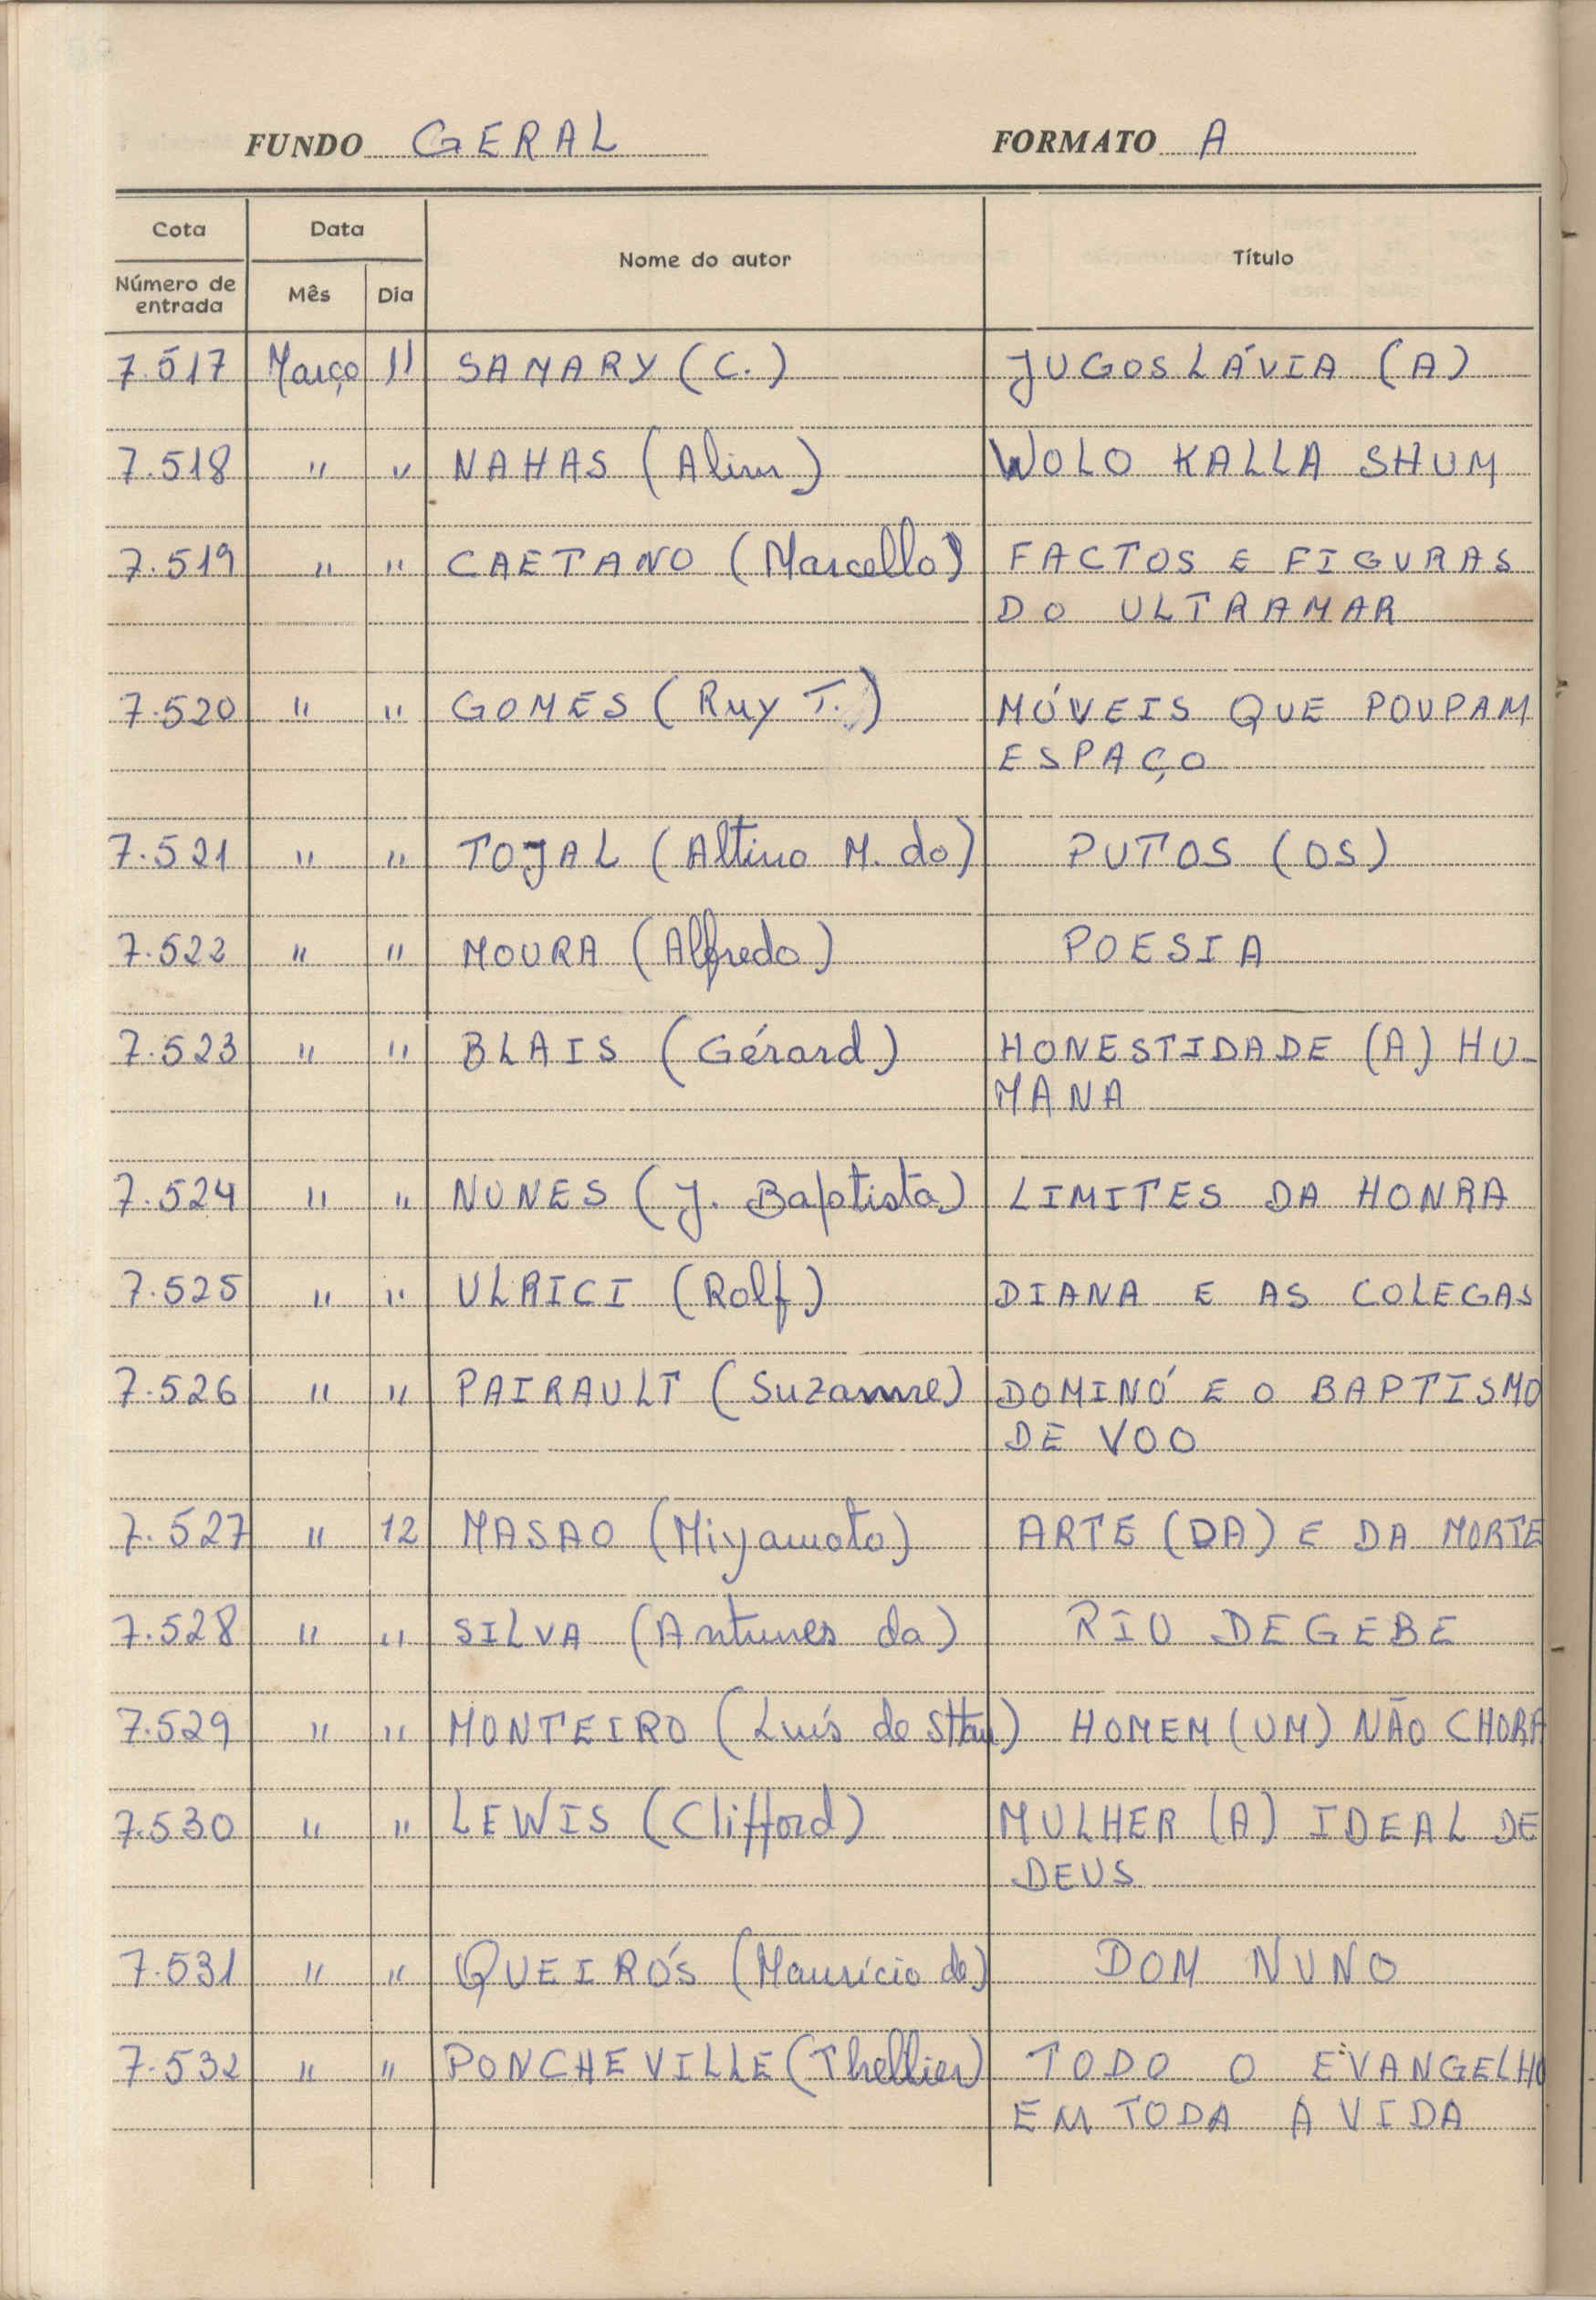 FUNDO GERAL FORMATO A
Cota Data Nome do autor Título
Número de entrada Mês Dia
7.517 Março 11 SAMARY (C.) JUGOSLÁVIA (A)
7.518 " " NAHAS (Alim) WOLO KALLA SHUM
7.519 " " CAETANO (Marcello) FACTOS E FIGURAS
DO ULTRAMAR
7.520 " " GOMES (Ruy T.) MÓVEIS QUE POUPAM
ESPAÇO
7.521 " " TOJAL (Altino M. do) PUTOS (OS)
7.522 " " MOURA (Alfredo) POESIA
7.523 " " BLAIS (Gérard) HONESTIDADE (A) HU-
MANA
7.524 " " NUNES (J. Baptista) LIMITES DA HONRA
7.525 " " ULRICI (Rolf) DIANA E AS COLEGAS
7.526 " " PAIRAULT (Suzanne) DOMINÓ E O BAPTISMO
DE VOO
7.527 " 12 MASAO (Miyamoto) ARTE (DA) E DA MORTE
7.528 " " SILVA (Antunes da) RIO DEGEBE
7.529 " " MONTEIRO (Luís de Sttau) HOMEM (UM) NÃO CHORA
7.530 " " LEWIS (Clifford) MULHER (A) IDEAL DE
DEUS
7.531 " " QUEIRÓS (Maurício de) DOM NUNO
7.532 " " PONCHEVILLE (Thellier) TODO O EVANGELHO
EM TODA A VIDA